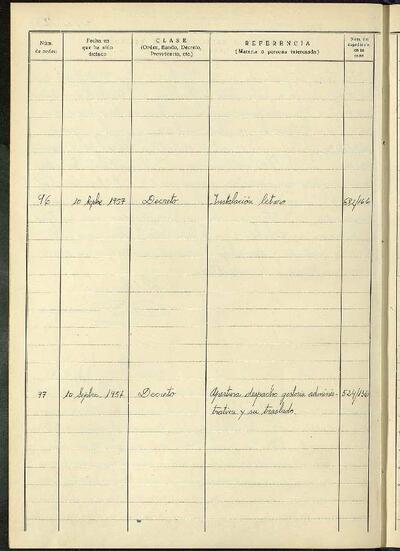 Núm. de orden
Fecha en que ha sido dictado
CLASE
(Orden, Bando, Decreto, Providencia, etc.)
REFERENCIA
(Materia o persona interesada)
Núm. del expediente en su caso
96 10 Sepbre 1957 Decreto Instalación letrero 682/166
97 10 Sepbre 1957 Decreto Apertura despacho gestoria adminis- 524/136
trativa y su traslado.